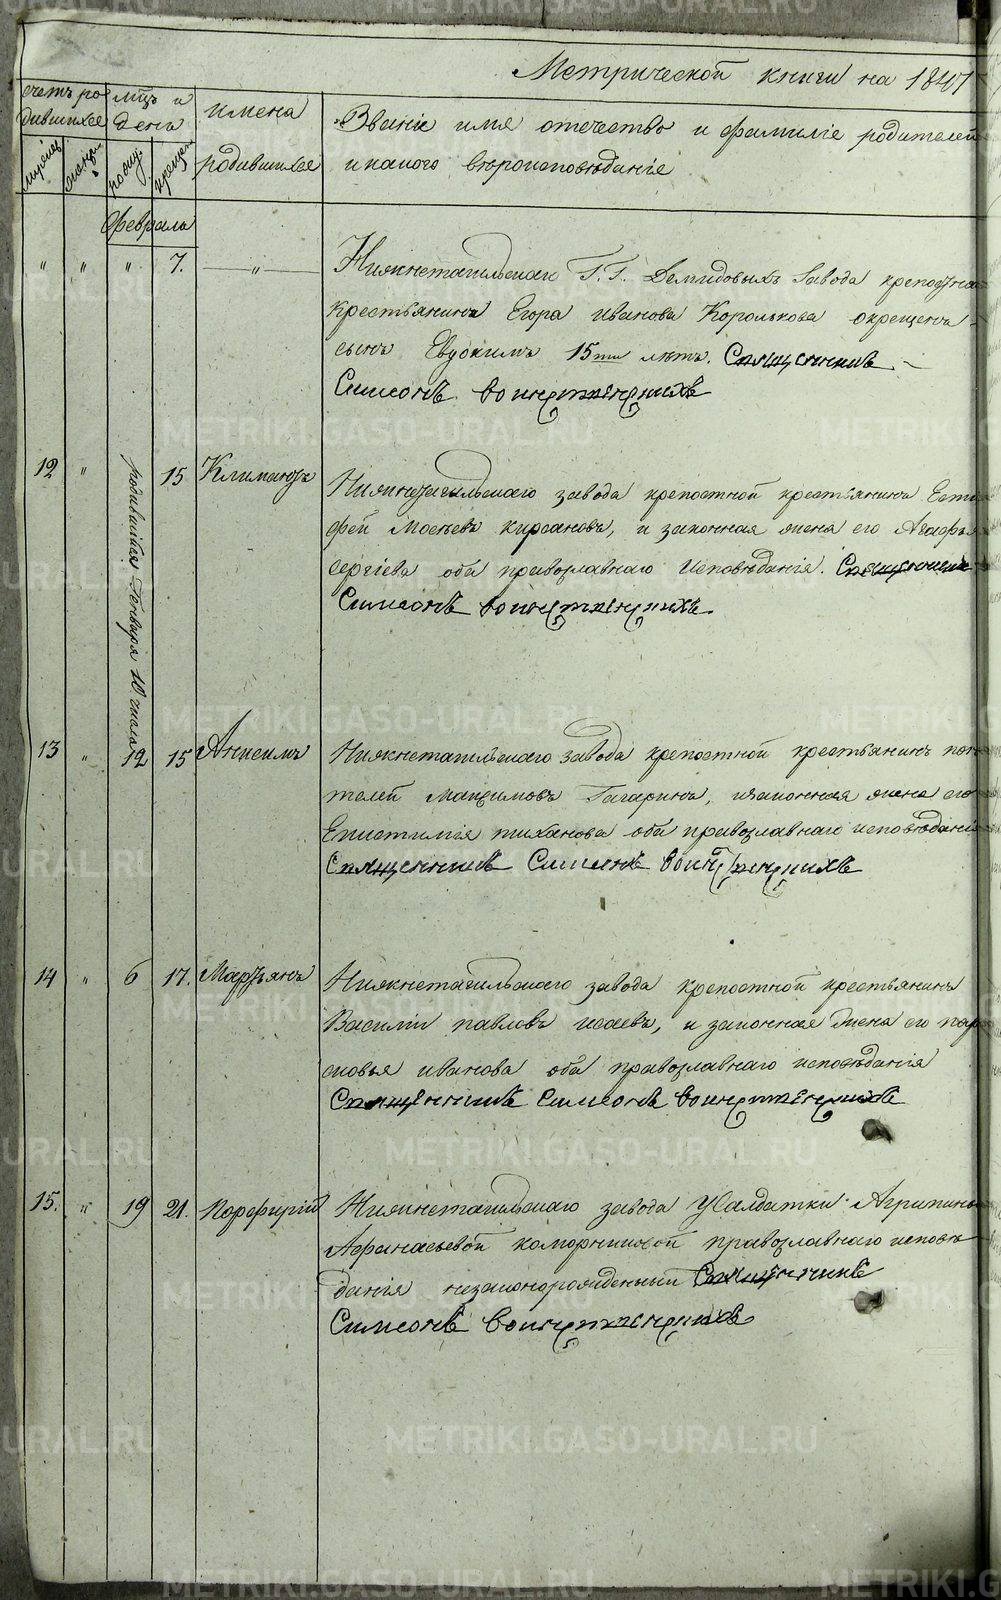 Метрической книги на 1847
счетъ ро
дившихся
мѣц и
дена
имена
родившихся
Званіе имя отечество и фамиліе родителей
и какого вѣроисповѣданіе
февраль
" " " 7. — " —
Нижнетагильскаго Г.Г. Демидовыхъ Завода
крестьянина Егора Иванова Королькова окрещенъ
сынъ Евдокимъ 15ти лѣтъ. Священникъ
Симеонъ
12 " родившійся Генваря 10 числа 15 Климантъ
Нижнетагильскаго завода крепостной крестьянинъ Евти
фей Мосѣевъ Кирсановъ, и законная жена его Агафья
Сергіева оба православнаго Исповѣданія. Священникъ
Симеонъ
13 " 12 15 Анисимъ
Нижнетагильскаго завода крепостной крестьянинъ пан
телей Максимовъ Гагаринъ, и законная жена его
Епистимія тиханова оба православнаго исповѣданія
Священникъ Симеонъ
14 " 6 17. Мартьянъ
Нижнетагильскаго завода крепостной крестьянинъ
Василіи павловъ исаевъ, и законная жена его пар
сковья иванова оба православнаго исповѣданія
Священникъ Симеонъ
15. " 19 21. Порфирій
Нижнетагильскаго завода У Салдатки Агрипины
Афанасьевой коморниковой православнаго исповѣ
данія незаконорожденный Священникъ
Симеонъ
METRIKI.GASO-URAL.RU